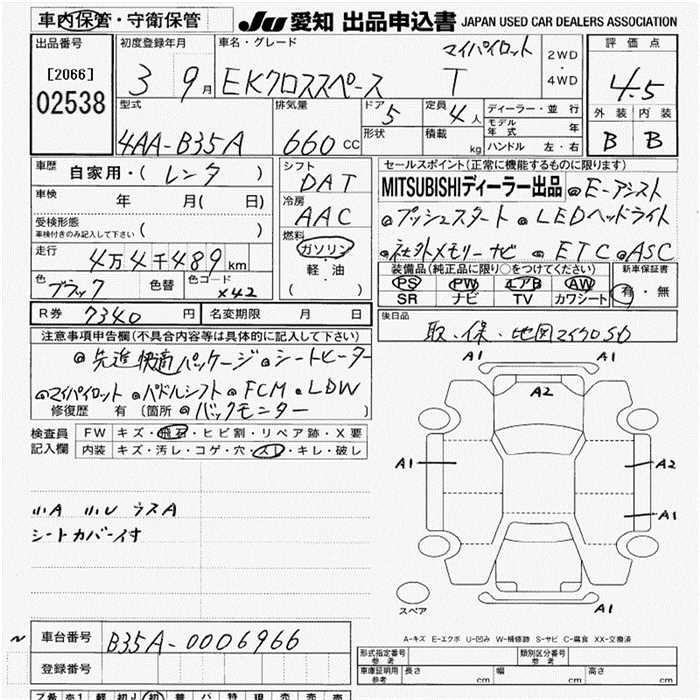 車内保管・守衛保管
JU 愛知 出品申込書 JAPAN USED CAR DEALERS ASSOCIATION
出品番号
[2066]
02538
初度登録年月
3 9月
車名・グレード
マイパイロット
EKクロススペース T
2WD
・
4WD
評価点
4.5
外装 内装
B B
型式
4AA-B35A
排気量
660 CC
ドア 5
形状
定員 4人
積載 kg
ディーラー・並行
モデル年式 年
ハンドル 左・右
車歴 自家用・( レンタ )
車検 年 月( 日)
受検形態
車検付きのみ記入して下さい ( )
走行 4万4千489km
色 ブラック 色替 色コード X42
シフト
DAT
冷房
AAC
燃料
ガソリン
・
軽・油
( )
セールスポイント(正常に機能するものに限ります)
MITSUBISHIディーラー出品 @E-アシスト
@プッシュスタート @LEDヘッドライト
@社外メモリーナビ @ETC @ASC
装備品(純正品に限り○をつけてください)
PS PW エアB AW
SR ナビ TV カワシート
新車保証書
有・無
R券 7340円 名変期限 月 日
後日品
取・保・地図マイクロSD
注意事項申告欄(不具合内容等は具体的に記入して下さい)
@先進快適パッケージ@シートヒーター
@マイパイロット @パドルシフト @FCM @LDW
修復歴 有 (箇所 @バックモニター )
検査員記入欄
FW キズ・飛石・ヒビ割・リペア跡・X要
内装 キズ・汚レ・コゲ・穴・スレ・キレ・破レ
小A 小U ウスA
シートカバー付
A1 A1
A2
A1 A2
A1
スペア
A1
A-キズ E-エクボ U-凹み W-補修跡 S-サビ C-腐食 XX-交換済
車台番号 B35A-0006966
登録番号
形式指定番号
参考
類別区分番号
参考
車庫証明用
参考
長さ cm 幅 cm 高さ cm